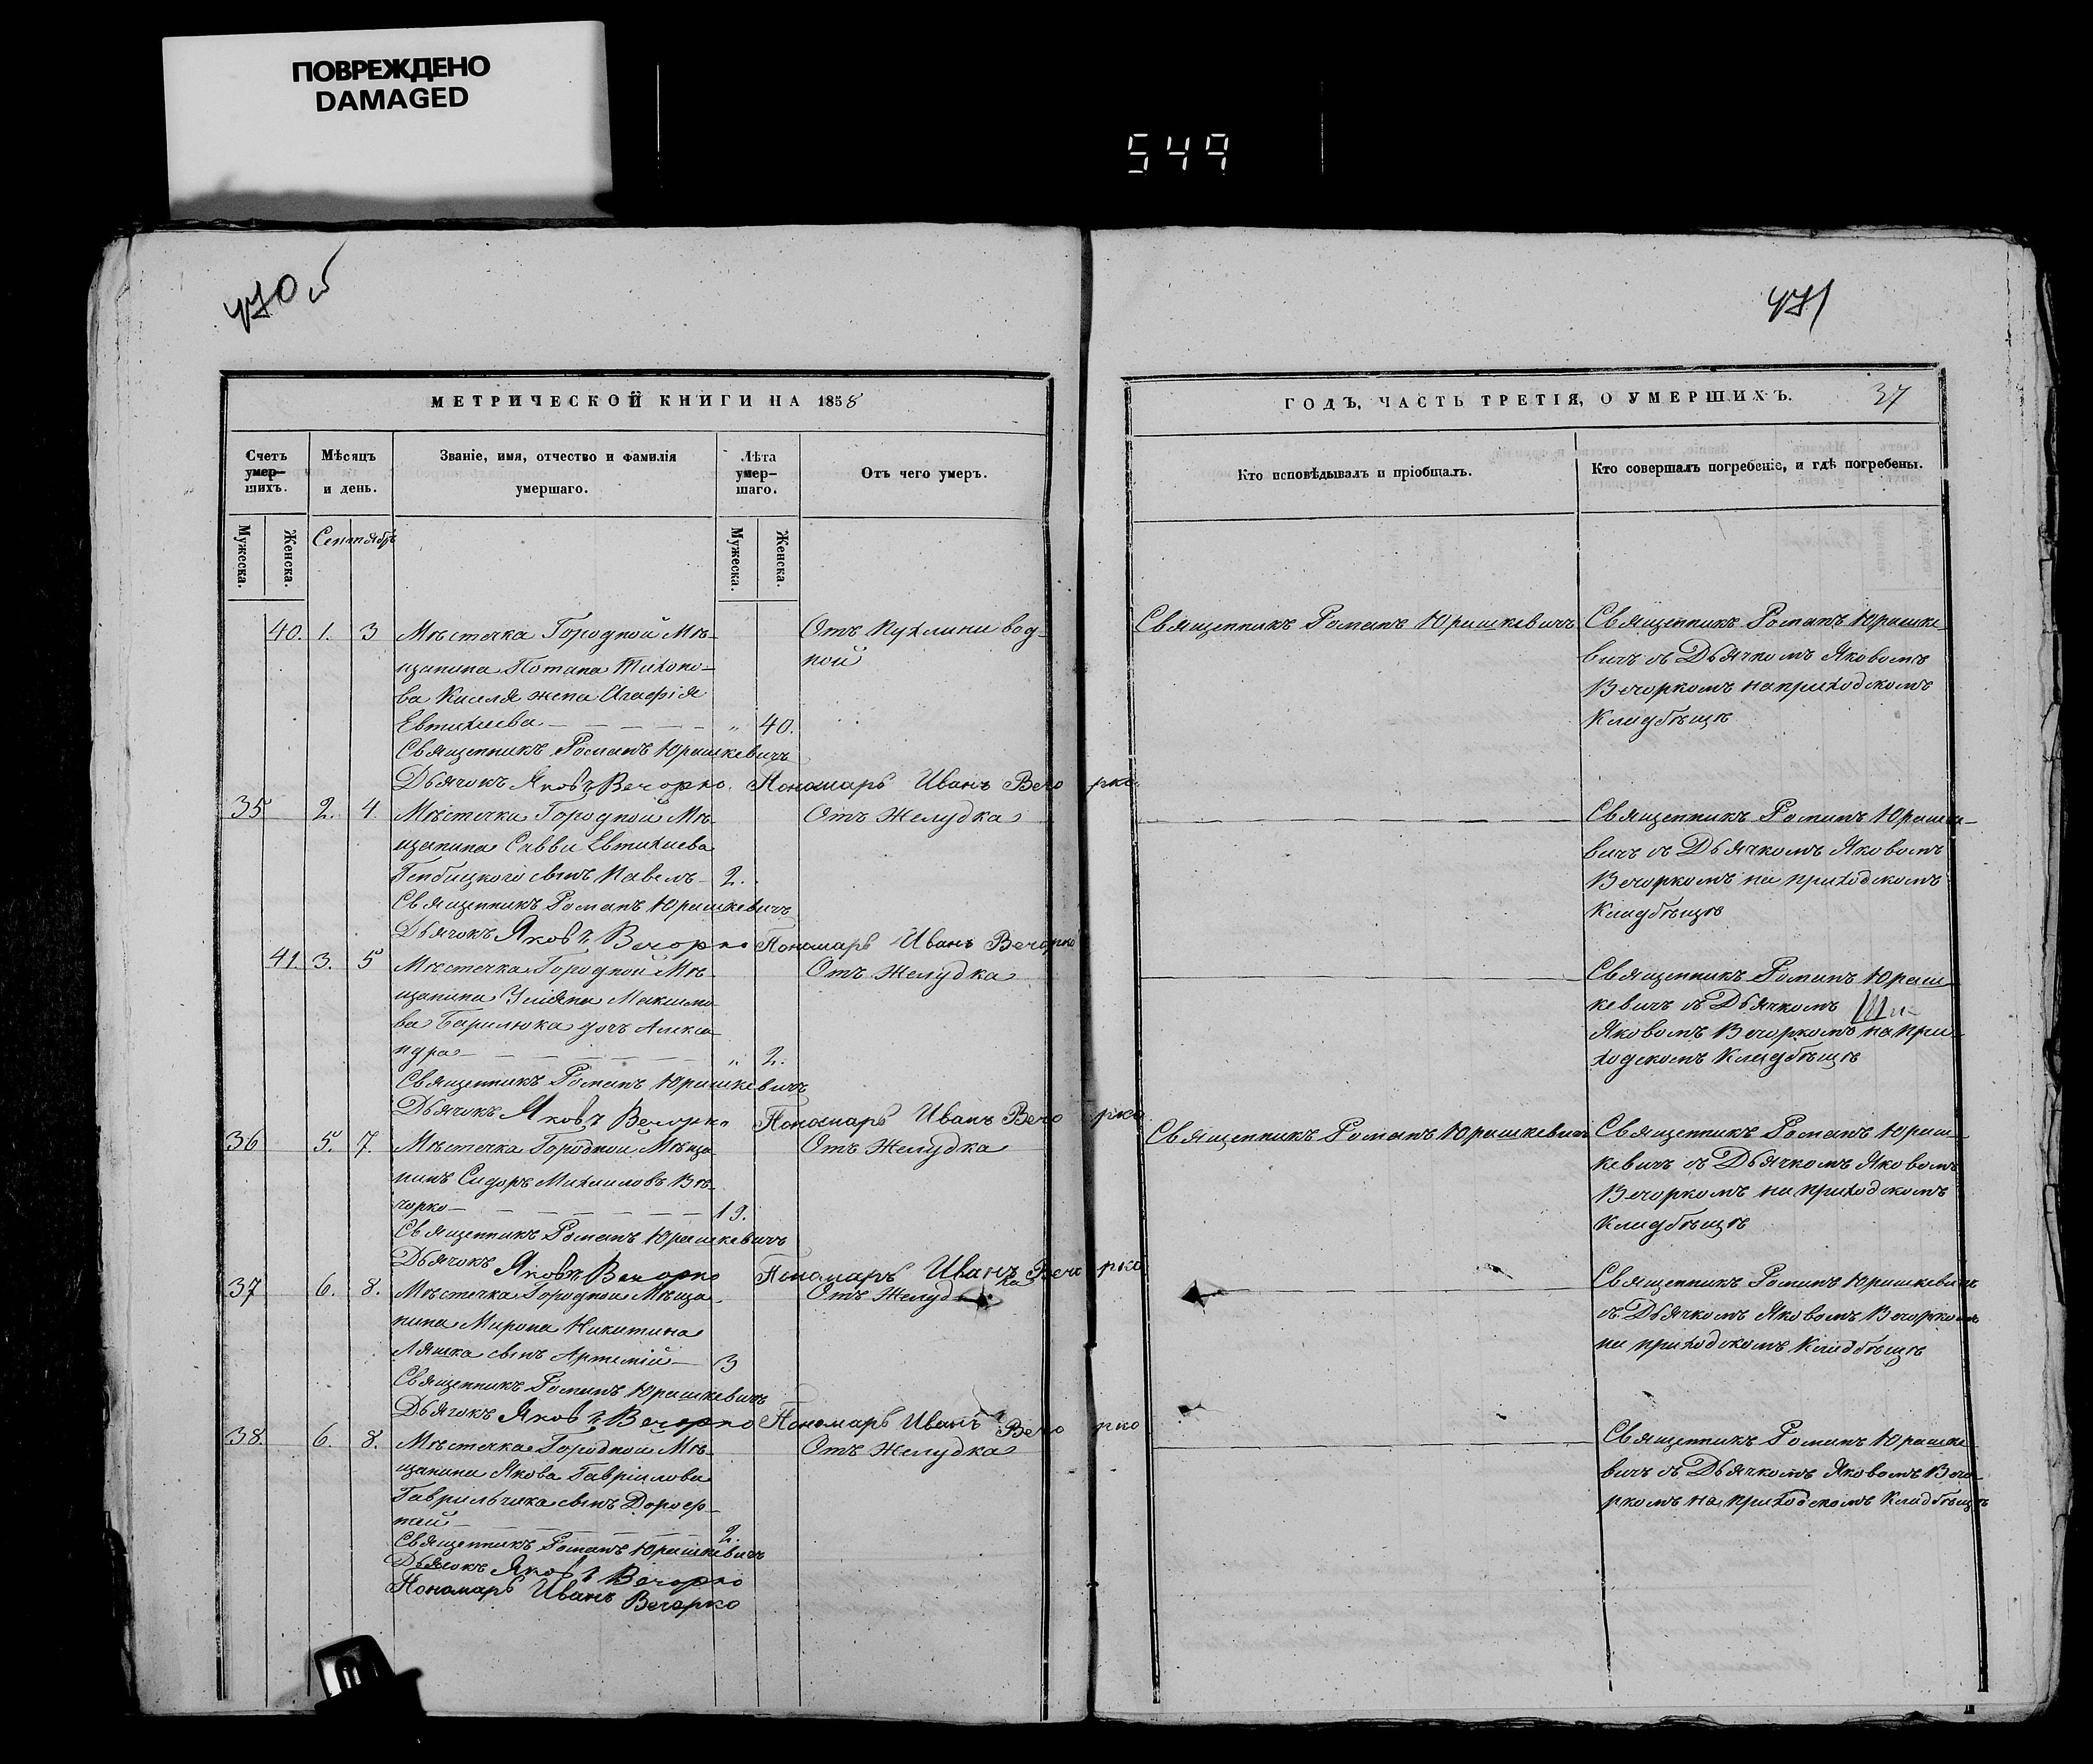 ПОВРЕЖДЕНО
DAMAGED
549
470 об
471
МЕТРИЧЕСКОЙ КНИГИ НА 1858
ГОДЪ, ЧАСТЬ ТРЕТІЯ, О УМЕРШИХЪ.
37
Счетъ умер-шихъ.
Мѣсяцъ и день.
Званіе, имя, отчество и фамилія умершаго.
Лѣта умер-шаго.
Отъ чего умеръ.
Кто исповѣдывалъ и пріобщалъ.
Кто совершалъ погребеніе, и гдѣ погребены.
Мужеска.
Женска.
Сентябрь
Мужеска.
Женска.
40. 1. 3
Мѣстечка Городной Мѣ-
щанина Потапа Тихоно-
ва Киселя жена Агафія
Евтихиева — „ 40.
Отъ Пухлини вод-
ной
Священникъ Романъ Юрашкевичъ
Священникъ Романъ Юрашке-
вичъ съ Дьячкомъ Яковомъ
Вечоркомъ на приходскомъ
Кладбѣщѣ
Священникъ Романъ Юрашкевичъ
Дьячокъ Яковъ Вечорко. Пономарь Иванъ Вечорко
35 2. 4.
Мѣстечка Городной Мѣ-
щанина Саввы Евтихиева
сынъ Павелъ — 2.
Отъ Желудка
Священникъ Романъ Юрашке-
вичъ съ Дьячкомъ Яковомъ
Вечоркомъ на приходскомъ
Кладбѣщѣ
Священникъ Романъ Юрашкевичъ
Дьячокъ Яковъ Вечорко Пономарь Иванъ Вечорко
41. 3. 5
Мѣстечка Городной Мѣ-
щанина Максимо-
ва дочь Алекса-
ндра — „ 2.
Отъ Желудка
Священникъ Романъ Юраш-
кевичъ съ Дьячкомъ
Яковомъ Вечоркомъ на при-
ходскомъ Кладбѣщѣ
Священникъ Романъ Юрашкевичъ
Дьячокъ Яковъ Вечорко Пономарь Иванъ Вечорко
36 5. 7.
Мѣстечка Городной Мѣща-
нинъ Сидоръ Михаиловъ Ве-
чорко — 19.
Отъ Желудка
Священникъ Романъ Юрашкевичъ
Священникъ Романъ Юраш-
кевичъ съ Дьячкомъ Яковомъ
Вечоркомъ на приходскомъ
Кладбѣщѣ
Священникъ Романъ Юрашкевичъ
Дьячокъ Яковъ Вечорко Пономарь Иванъ Вечорко
37 6. 8.
Мѣстечка Городной Мѣща-
нина Мирона Никитина
Ляшка сынъ Артемій — 3
Отъ Желудка
Священникъ Романъ Юрашкевичъ
съ Дьячкомъ Яковомъ Вечоркомъ
на приходскомъ Кладбѣщѣ
Священникъ Романъ Юрашкевичъ
Дьячокъ Яковъ Вечорко Пономарь Иванъ Вечорко
38. 6. 8.
Мѣстечка Городной Мѣ-
щанина Якова Гавріилова
Гаврильчика сынъ Дороф-
тей — 2.
Отъ Желудка
Священникъ Романъ Юрашке-
вичъ съ Дьячкомъ Яковомъ Вечо-
ркомъ на приходскомъ Кладбѣщѣ
Священникъ Романъ Юрашкевичъ
Дьячокъ Яковъ Вечорко
Пономарь Иванъ Вечорко